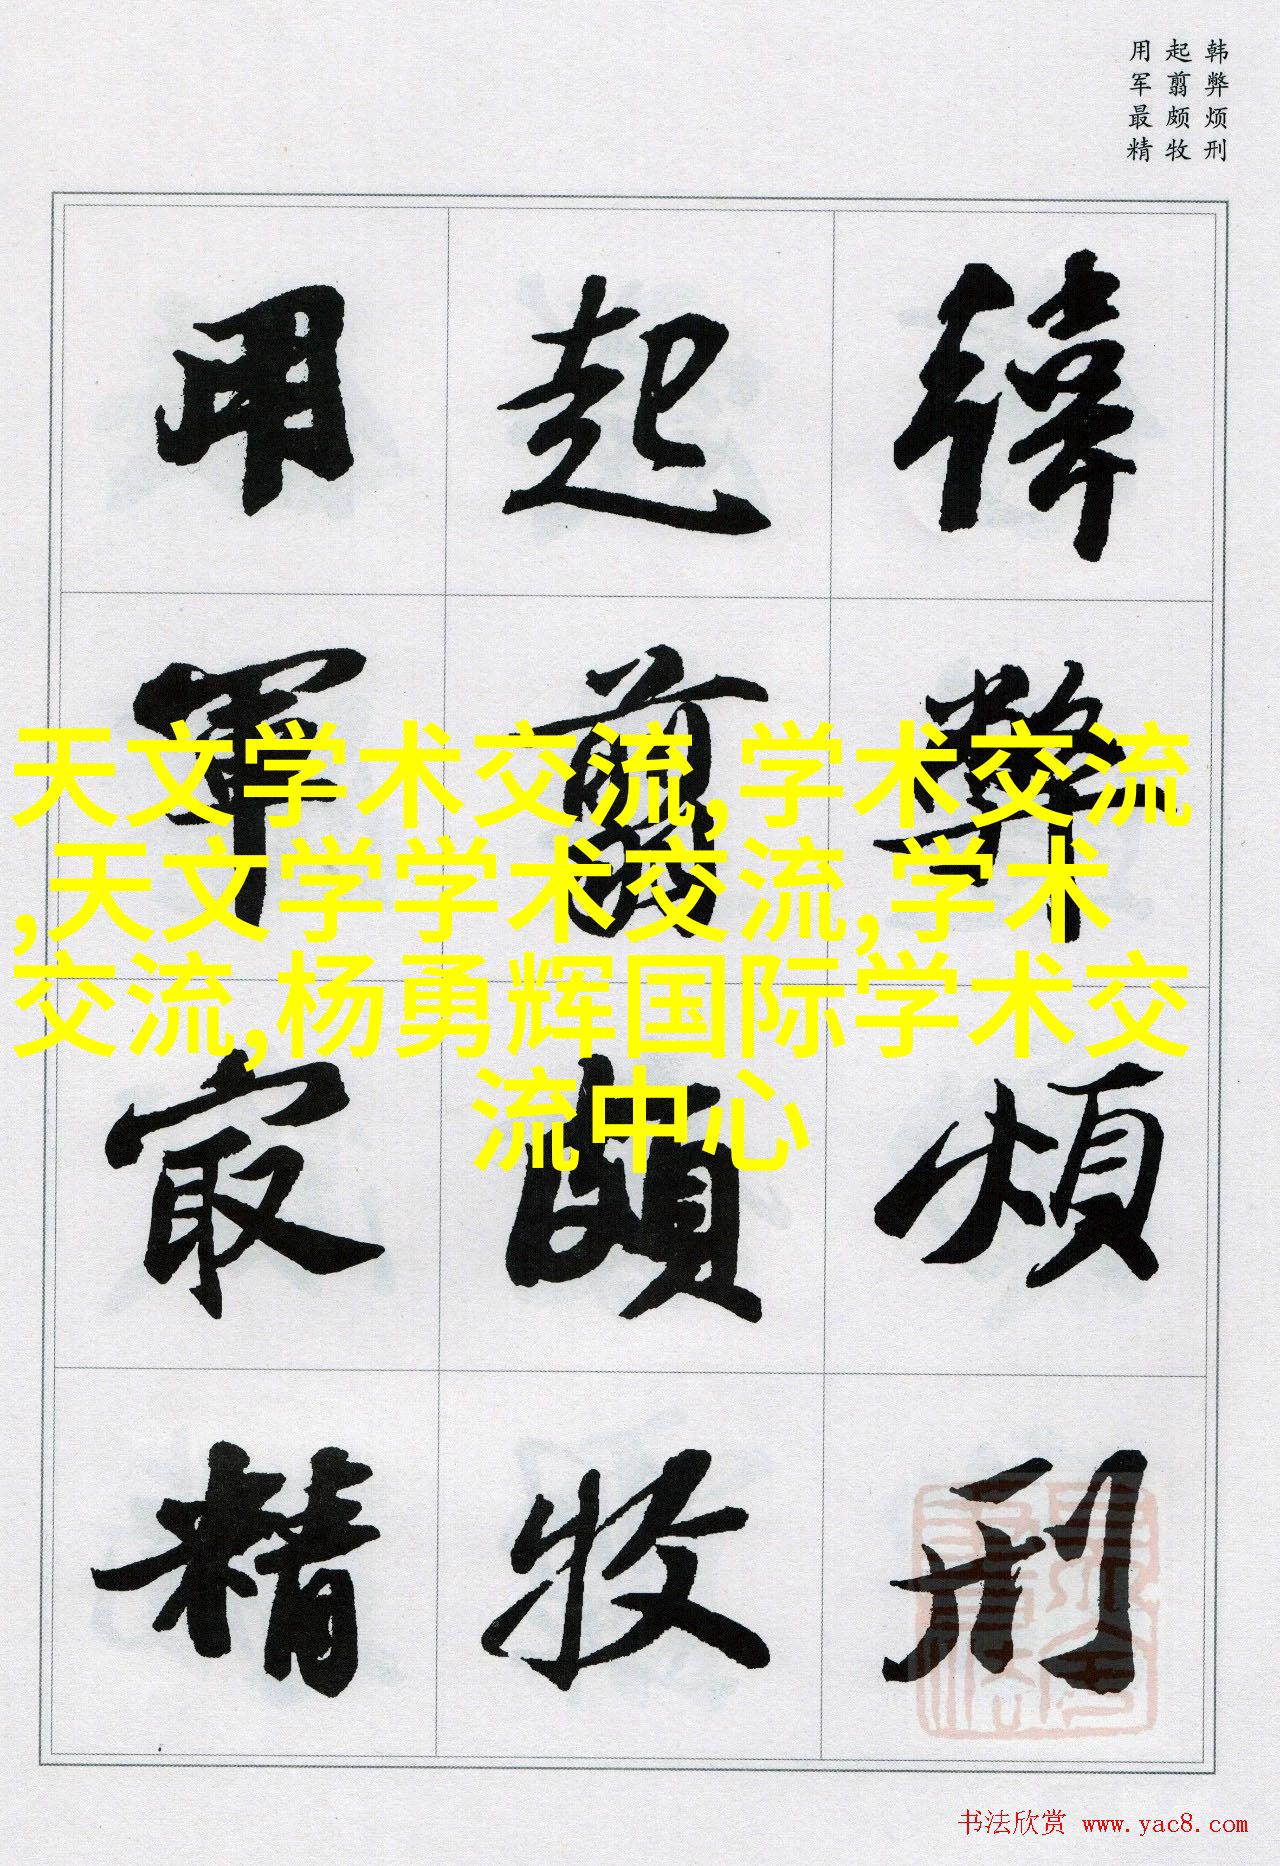 韩弊烦刑
起翦颇牧
用军最精
韓弊煩刑
起翦頗牧
用軍最精
天文学术交流,学术交流
,天文学学术交流,学术
交流,杨勇辉国际学术交
流中心
书法欣赏 www.yac8.com